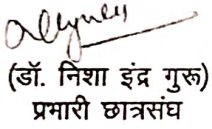 (डॉ. निशा इंद्र गुरू)
प्रभारी छात्रसंघ